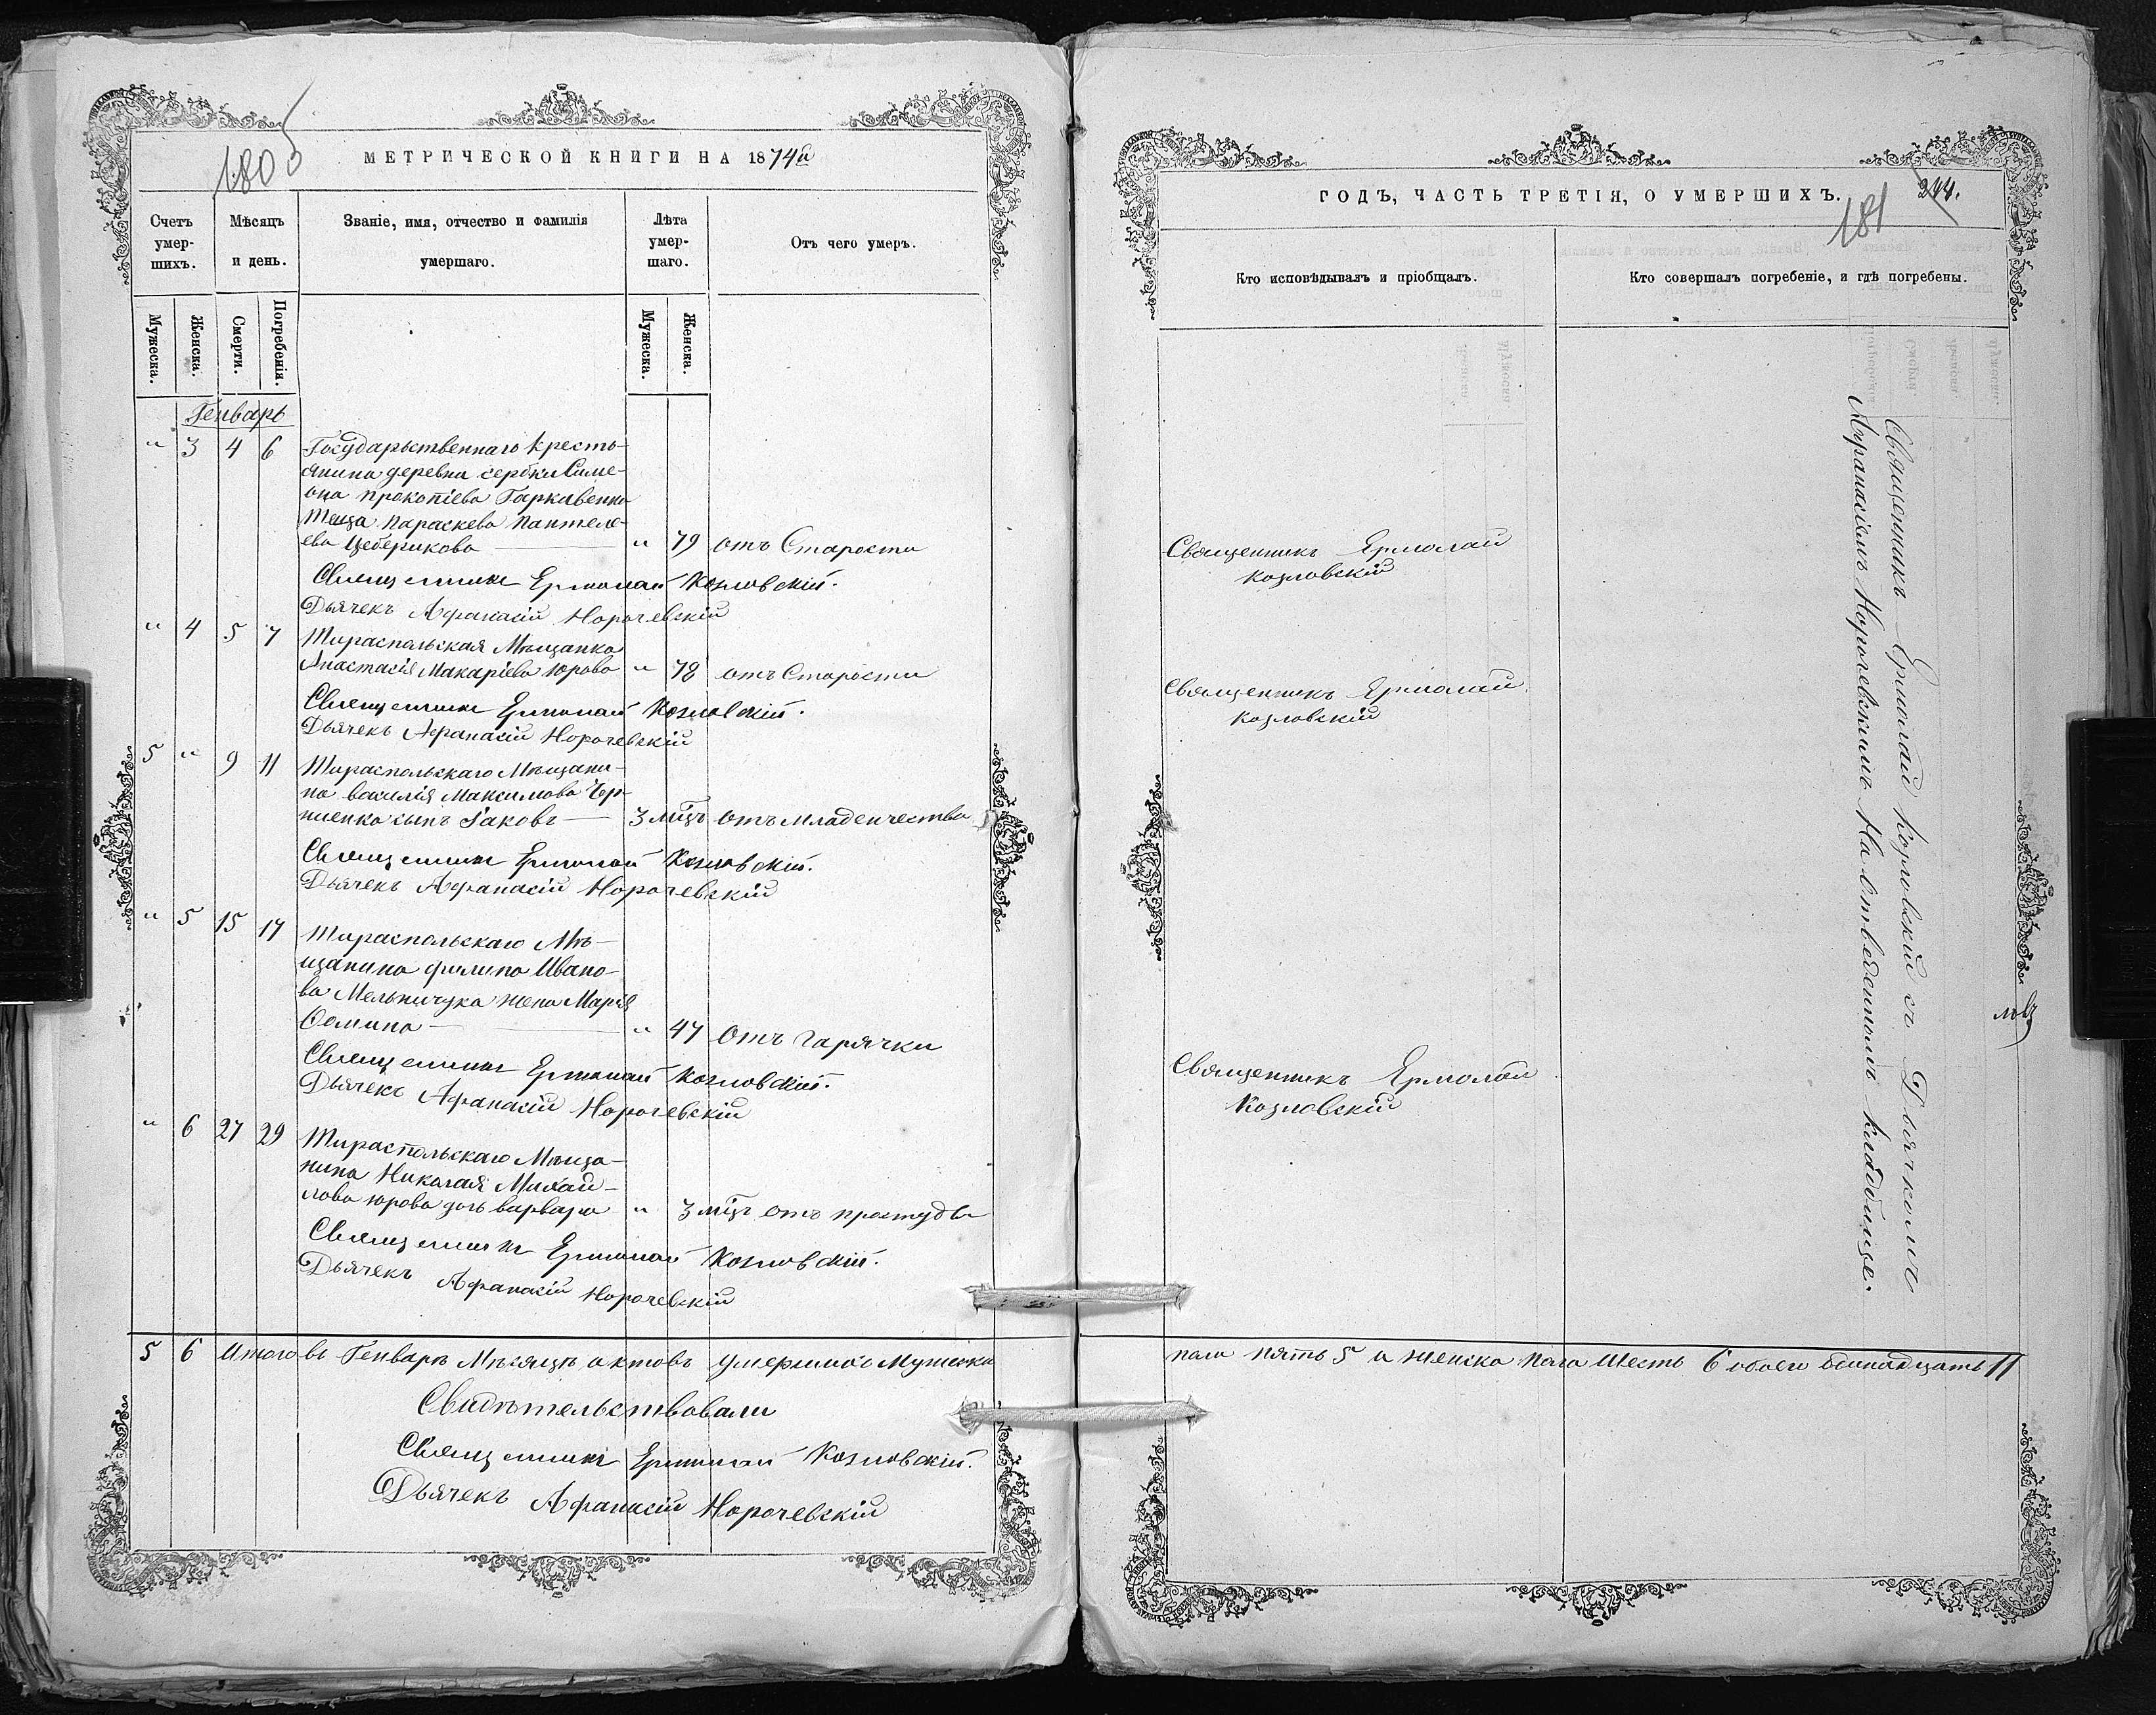 1805
МЕТРИЧЕСКОЙ КНИГИ НА 1874й
Счетъ умер-шихъ.
Мѣсяцъ и день.
Званіе, имя, отчество и фамилія умершаго.
Лѣта умер-шаго.
Отъ чего умеръ.
Мужеска.
Женска.
Смерти.
Погребенія.
Мужеска.
Женска.
Генварь
" 3 4 6 Государственнаго кресть-
янина деревни сербки Симе-
она прокопіева Гаркавенко
теща параскева пантеле-
ева Цеберикова — " 79 отъ Старости
Священникъ Ермолай Козловскій.
Дьячекъ Афанасій Норочевскій
" 4 5 7 Тираспольская Мѣщанка
Анастасія Макаріева Юрова " 78 отъ Старости
Священникъ Ермолай Козловскій.
Дьячекъ Афанасій Норочевскій
5 " 9 11 Тираспольскаго Мѣщани-
на василія Максимова Чер-
ниенка сынъ Іаковъ — 3 мцъ отъ младенчества
Священникъ Ермолай Козловскій.
Дьячекъ Афанасій Норочевскій
" 5 15 17 Тираспольскаго Мѣ-
щанина филипа Ивано-
ва Мельничука жена Марія
— " 47 отъ гарячки
Священникъ Ермолай Козловскій.
Дьячекъ Афанасій Норочевскій
" 6 27 29 Тираспольскаго Мѣща-
нина Николая Михай-
лова Юрова дочь варвара " 3 мцъ отъ простуды
Священникъ Ермолай Козловскій.
Дьячекъ Афанасій Норочевскій
5 6 Итого въ Генварѣ Мѣсяцѣ актовъ умершихъ Мужеска
Свидѣтельствовали
Священникъ Ермолай Козловскій.
Дьячекъ Афанасій Норочевскій
ГОДЪ, ЧАСТЬ ТРЕТІЯ, О УМЕРШИХЪ.
181
244.
Кто исповѣдывалъ и пріобщалъ.
Кто совершалъ погребеніе, и гдѣ погребены.
Священникъ Ермолай
козловскій
Священникъ Ермолай
козловскій
Священникъ Ермолай
Козловскій
Священникъ Ермолай козловскій съ Дьячкомъ
Афанасіемъ Норочевскимъ На отведенномъ кладбище.
пола пять 5 и женска пола шесть 6 обоего одинадцать 11